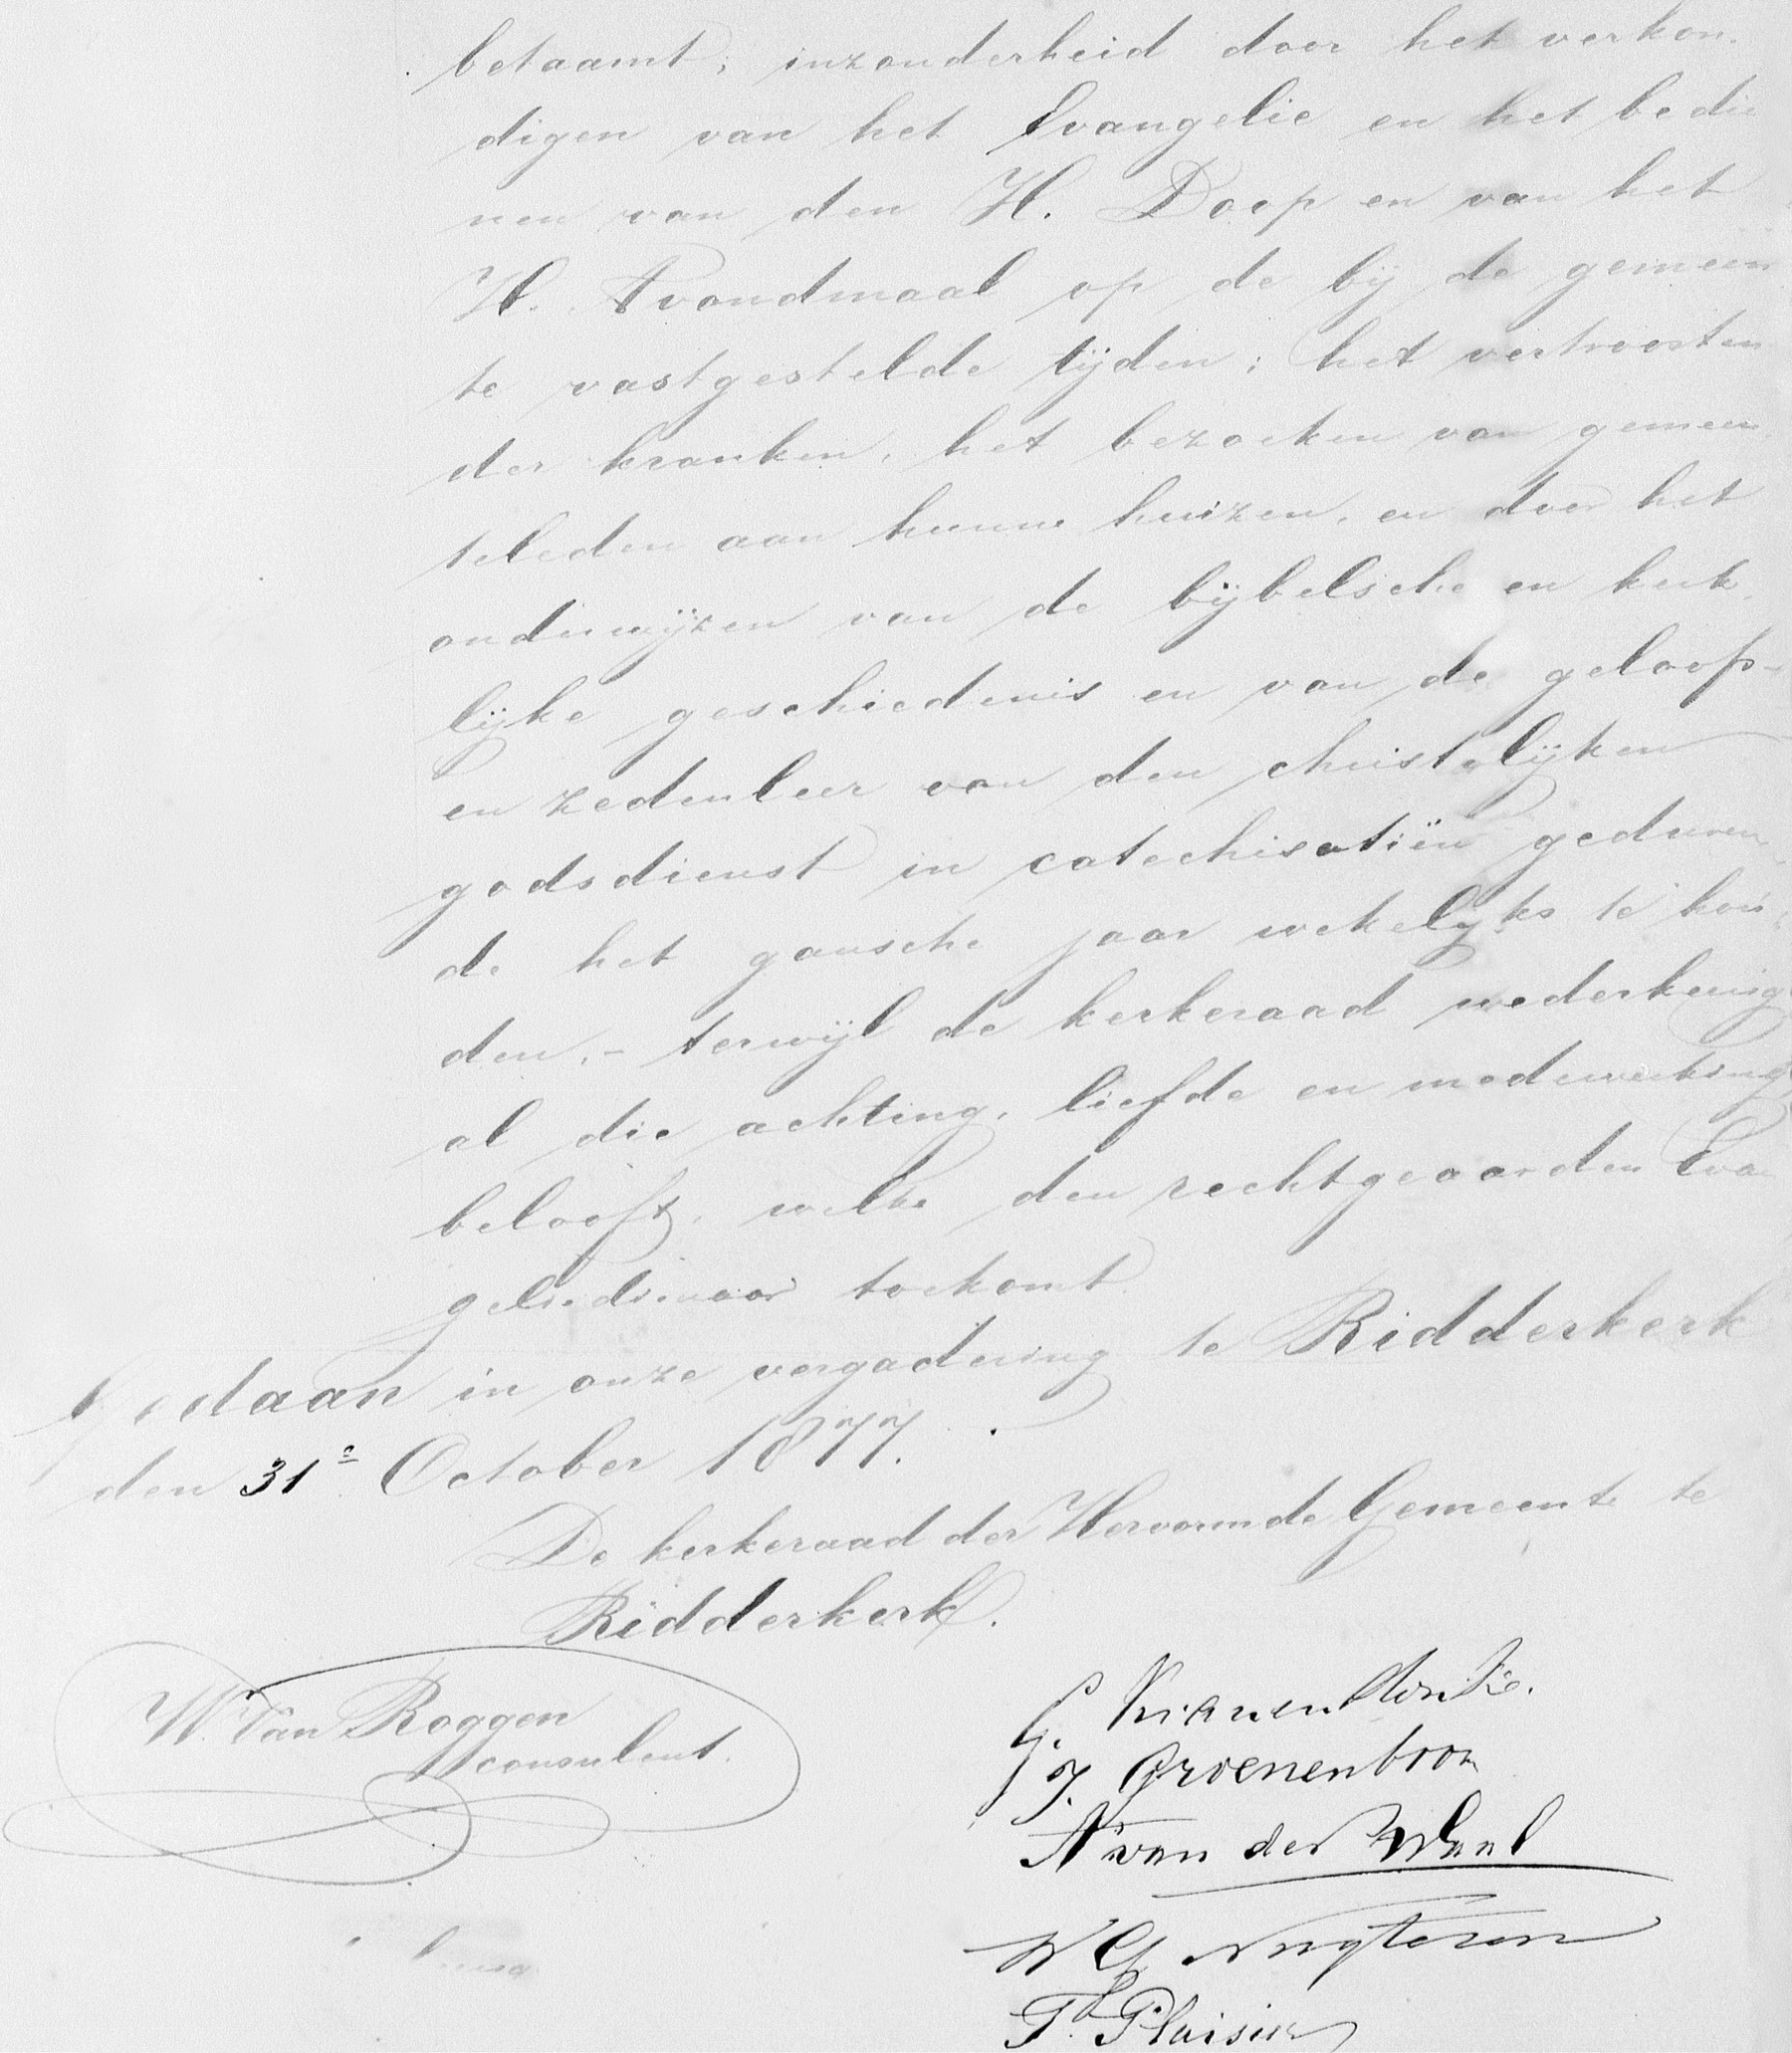 betaamt; inzonderheid door het verkon-
digen van het Evangelie en het bedie
nen van den H. Doop en van het
H. Avondmaal op de bij de gemeen
te vastgestelde tijden; het vertroosten
der kranken, het bezoeken van gemeen
teleden aan hunne huizen, en door het
onderwijzen van de bijbelsche en kerk-
lijke geschiedenis en van de geloofs-
en zedenleer van den christelijken
godsdienst in catechisatiën geduren
de het gansche jaar wekelijks te hou
den, - terwijl de kerkeraad wederkeerig
al die achting, liefde en medewerking
belooft, welke den rechtgeaarden Evan
geliedienaar toekomt.
Gedaan in onze vergadering te Ridderkerk
den 31e October 1877.
De kerkeraad der Hervormde Gemeente te
Ridderkerk.
W. Van Roggen
consulent.
G. Kranendonk
J. Groenenboom
A van der Waal
W G Nugteren
Th. Plaisier